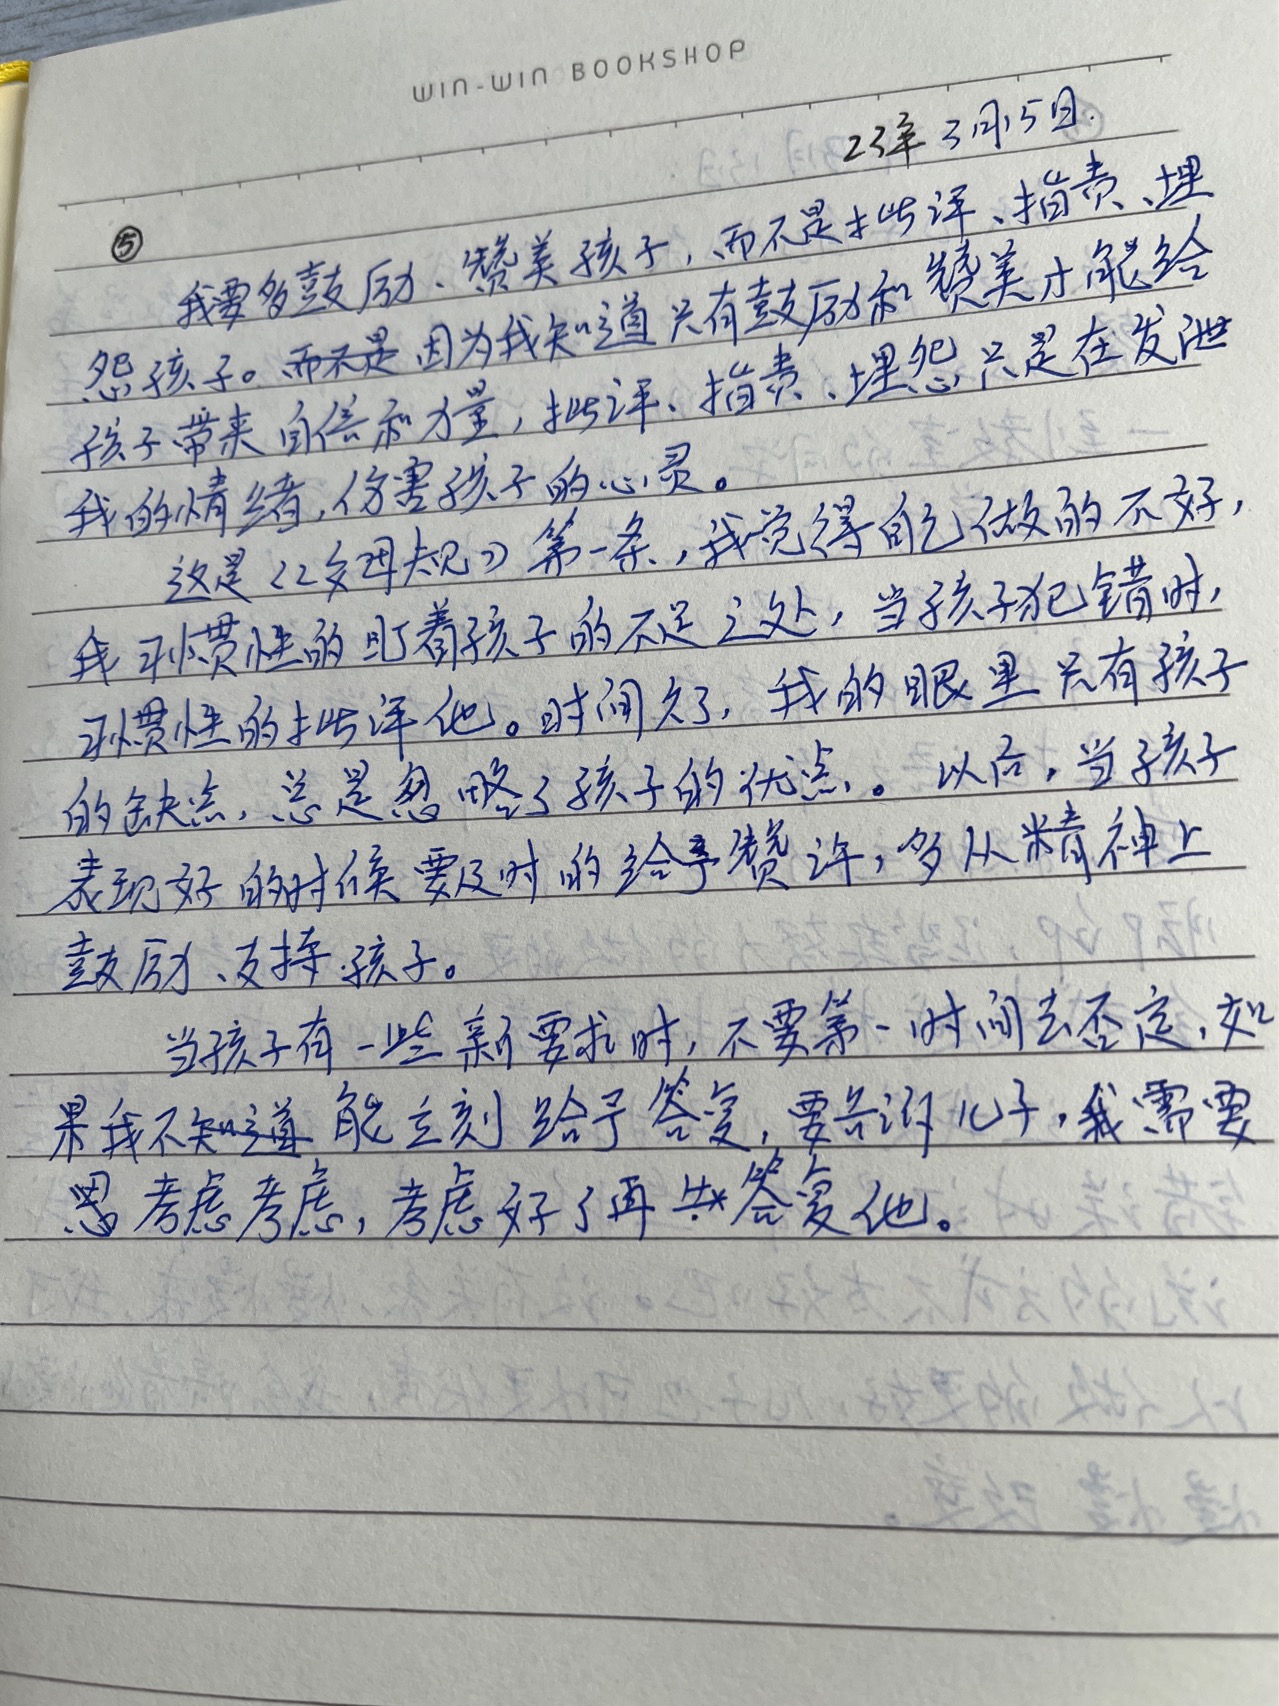 WIN-WIN BOOKSHOP
23年3月15日.
⑤
我要多鼓励、赞美孩子,而不是批评、指责、埋
怨孩子。而不是因为我知道只有鼓励和赞美才能给
孩子带来自信和力量,批评、指责、埋怨只是在发泄
我的情绪,伤害孩子的心灵。
这是《父母规》第一条,我觉得自己做的不好,
我习惯性的盯着孩子的不足之处,当孩子犯错时,
习惯性的批评他。时间久了,我的眼里只有孩子
的缺点,总是忽略了孩子的优点。以后,当孩子
表现好的时候要及时的给予赞许,多从精神上
鼓励、支持孩子。
当孩子有一些新要求时,不要第一时间去否定,如
果我不知道能立刻给予答复,要告诉儿子,我需要
思考虑考虑,考虑好了再答复他。